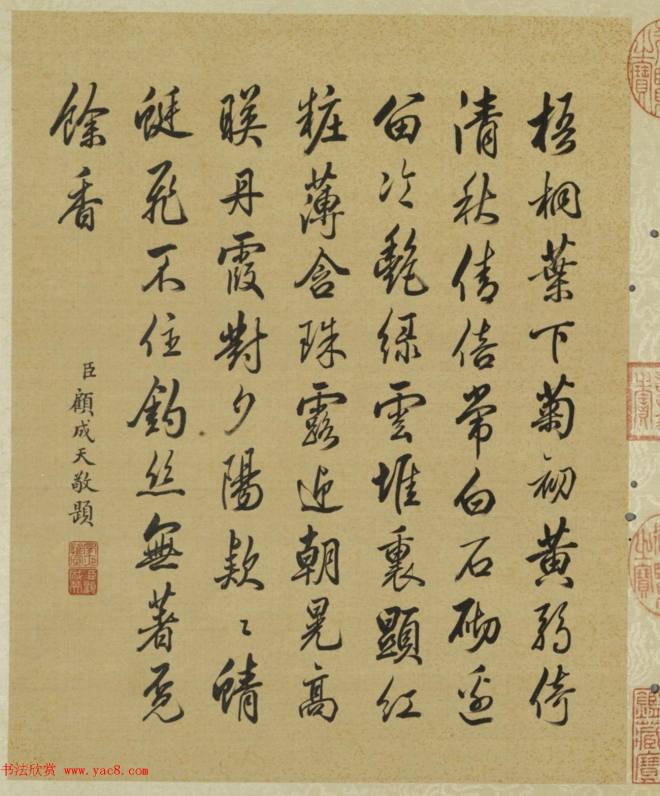 梧桐葉下菊初黃弱倚
清秋倩倍常白石砌邊
留冷艷綠雲堆裏顯紅
粧薄含珠露迎朝晃高
映丹霞對夕陽款〻蜻
蜓飛不住釣絲無著覓
餘香
臣顧成天敬題
书法欣赏 www.yac8.com